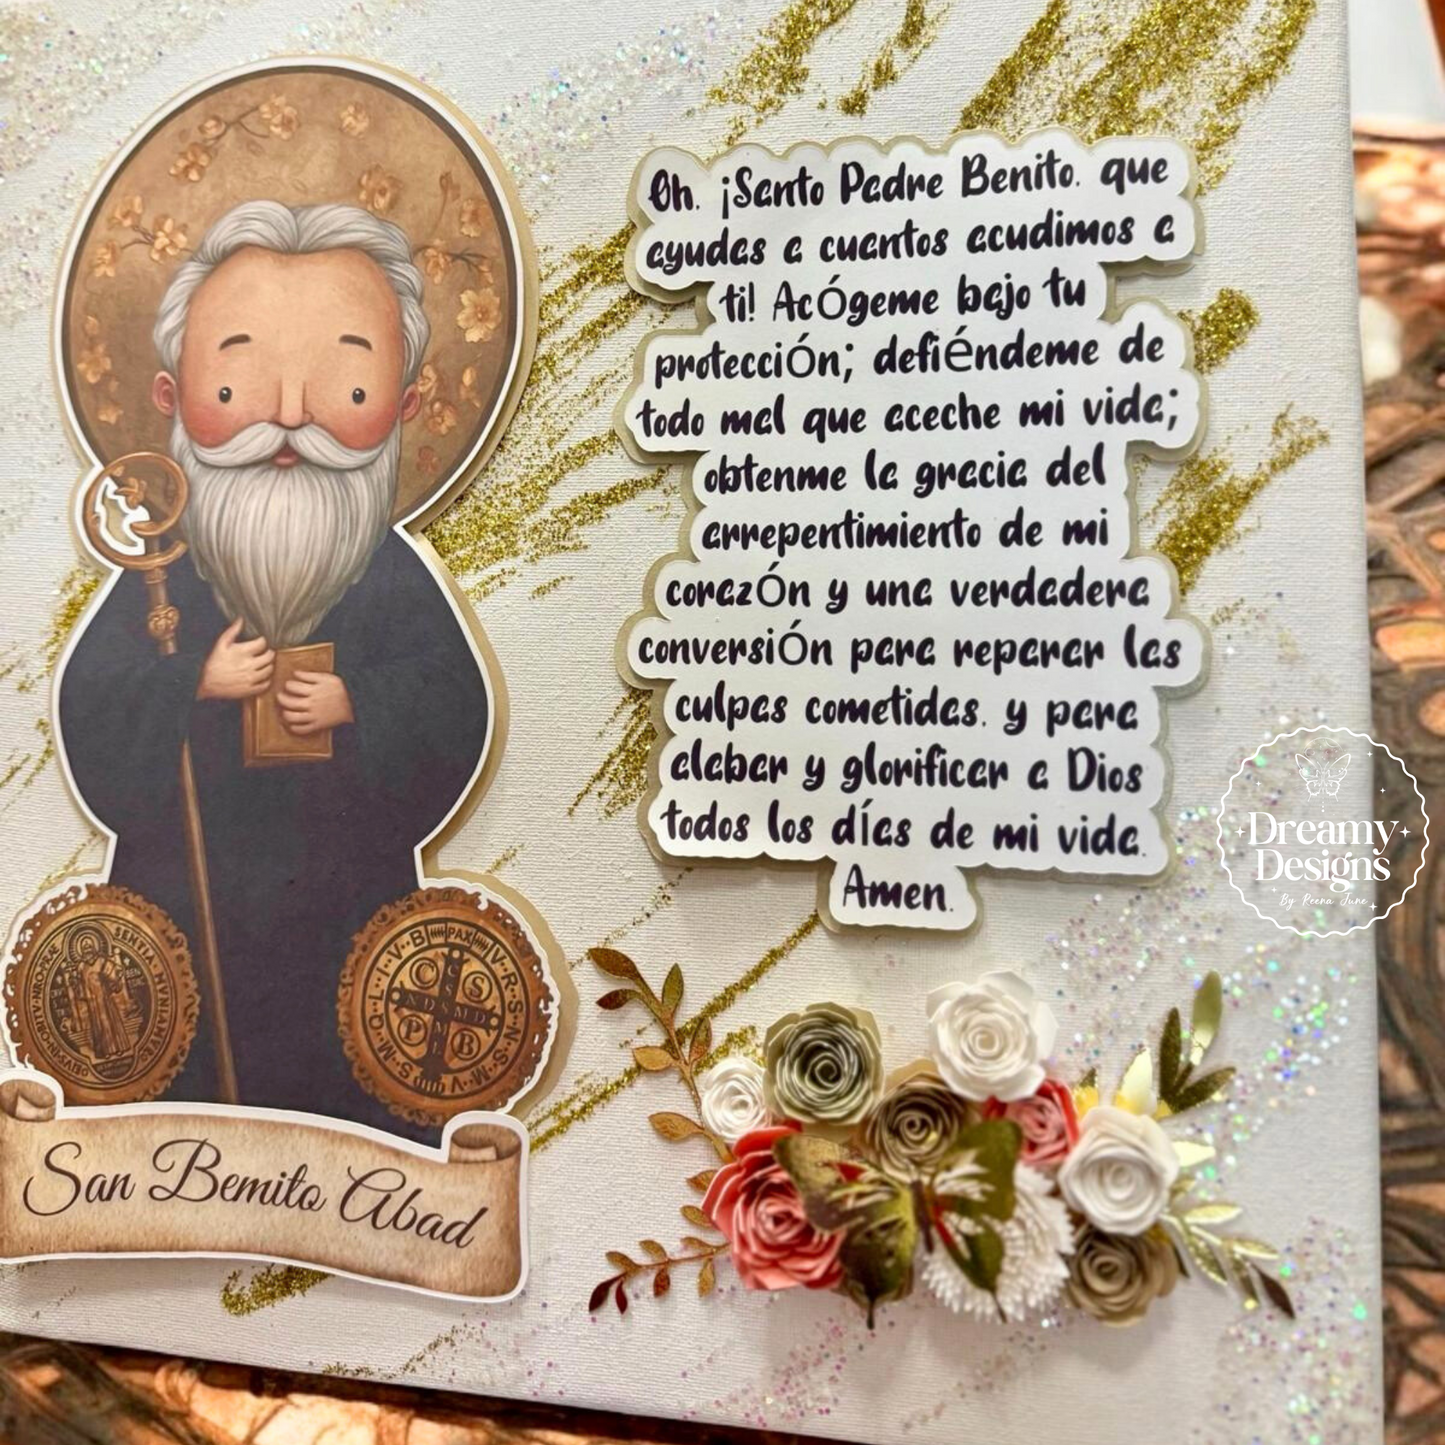 Oh. ¡Santo Padre Benito. que
ayudas a cuantos acudimos a
ti! AcÓgeme bajo tu
protecciÓn; defiéndeme de
todo mal que aceche mi vida;
obtenme la gracia del
arrepentimiento de mi
corazÓn y una verdadera
conversiÓn para reparar las
culpas cometidas. y para
alabar y glorificar a Dios
todos los días de mi vida.
Amen.
San Bemito Abad
Dreamy
Designs
By Reena June
V B PAX V R S N S M V S M Q L I
C S
N D S M D
P B